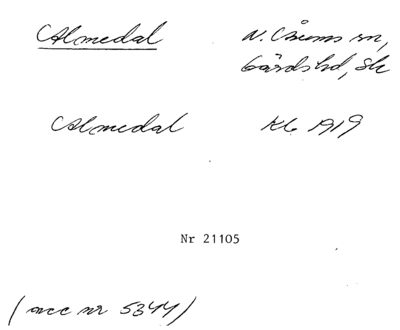 Almedal
N. Åsums sn,
Gärds hd, Sk
Almedal Kb 1919
Nr 21105
(acc nr 5344)